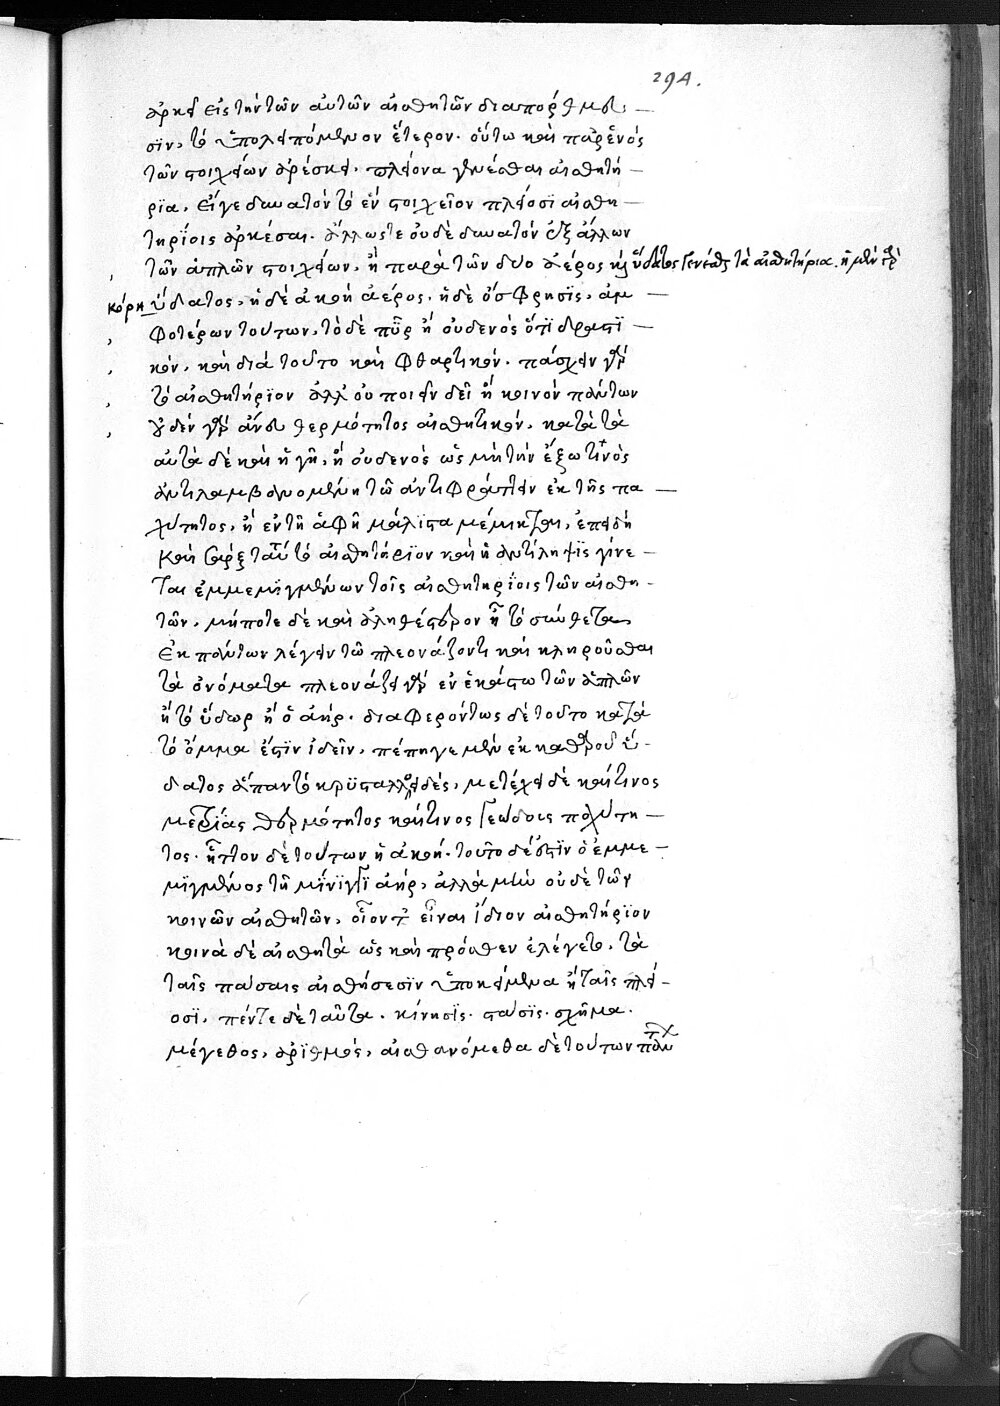 294.
ἀρκεῖ εἰς τὴν τῶν αὐτῶν αἰσθητῶν διαπόρθμευ
σϊν, τὸ ὑπολειπόμενον ἕτερον. οὕτω καὶ παρ' ἑνὸς
τῶν στοιχείων ἀρέσκει. πλείονα γενέσθαι αἰσθητή
ρϊα, εἴγε δυνατὸν τὸ ἓν στοιχεῖον πλείοσϊ αἰσθη
τηρίοις ἀρκέσαι. ἄλλως τε οὐδὲ δυνατὸν ἐξ ἄλλων
τῶν ἁπλῶν στοιχείων, ἢ παρὰ τῶν δυο ἀέρος καὶ ὕδατος γενέσθαι τὰ αἰσθητήρια. ἡ μὲν γὰρ
κόρη ὕδατος, ἡ δὲ ἀκοὴ ἀέρος, ἡ δὲ ὄσφρησϊς, ἀμ
φοτέρων τούτων, τὸ δὲ πῦρ ἢ οὐδενὸς ὅτϊ δραστϊ
κὸν, καὶ διὰ τοῦτο καὶ φθαρτικόν. πάσχειν γὰρ
τὸ αἰσθητήρϊον ἀλλ' οὐ ποιεῖν δεῖ ἢ κοινὸν πάντων
οὐδὲν γὰρ ἄνευ θερμότητος αἰσθητικόν, κατὰ τὰ
αὐτὰ δὲ καὶ ἡ γῆ, ἢ οὐδενὸς ὡς μὴ τὴν ἔξωτινὸς
ἀντιλαμβανομένη τῶ ἀντιφράττειν ἐκ τῆς πα
χύτητος, ἢ ἐν τῇ ἁφῇ μάλϊστα μέμικται, ἐπειδὴ
καὶ σὰρξ ταύτῃ τὸ αἰσθητήρϊον καὶ ἡ ἀντίληψϊς γίνε
ται ἐμμεμϊγμένων τοῖς αἰσθητηρίοις τῶν αἰσθη
τῶν, μήποτε δὲ καὶ ἀληθέστερον ἢ τὸ σύνθετα
ἐκ πάντων λέγειν τῶ πλεονάζοντι καὶ κληροῦσθαι
τὰ ὀνόματα πλεονάζει γὰρ ἐν ἑκάστω τῶν ἁπλῶν
ἢ τὸ ὕδωρ ἢ ὁ ἀήρ. διαφερόντως δὲ τοῦτο κατὰ
τὸ ὄμμα ἔστϊν ἰδεῖν, πέπηγε μὲν ἐκ καθαροῦ ὕ
δατος ἅπαν τὸ κρϋσταλλοειδὲς, μετέχει δὲ καί τινος
μετρίας θερμότητος καί τινος γεώδους παχύτη
τος. ἧττον δὲ τούτων ἡ ἀκοή. τοῦτο δέ ἐστϊν ὁ ἐμμε
μϊγμένος τῆ μήνϊγγϊ ἀήρ, ἀλλὰ μὴν οὐδὲ τῶν
κοινῶν αἰσθητῶν, οἷόν τε εἶναι ἴδιον αἰσθητήρϊον
κοινὰ δὲ αἰσθητὰ ὡς καὶ πρόσθεν ἐλέγετο, τὰ
ταῖς πάσαις αἰσθήσεσϊν ὑποκείμενα ἢ ταῖς πλεί
οσϊ, πέντε δὲ ταῦτα. κίνησϊς. στάσϊς. σχῆμα.
μέγεθος, ἀρϊθμὸς, αἰσθανόμεθα δὲ τούτων